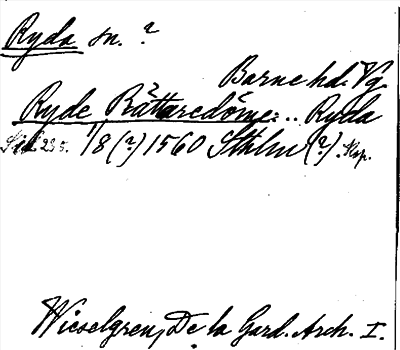 Ryda sn. ?
Barne hd. Vg.
Ryde Rättaredöme: .. Ryda
Sid. 235. 1/8 (?) 1560 Sthlm (?). Kop.
Wieselgren, De la Gard. Arch. I.